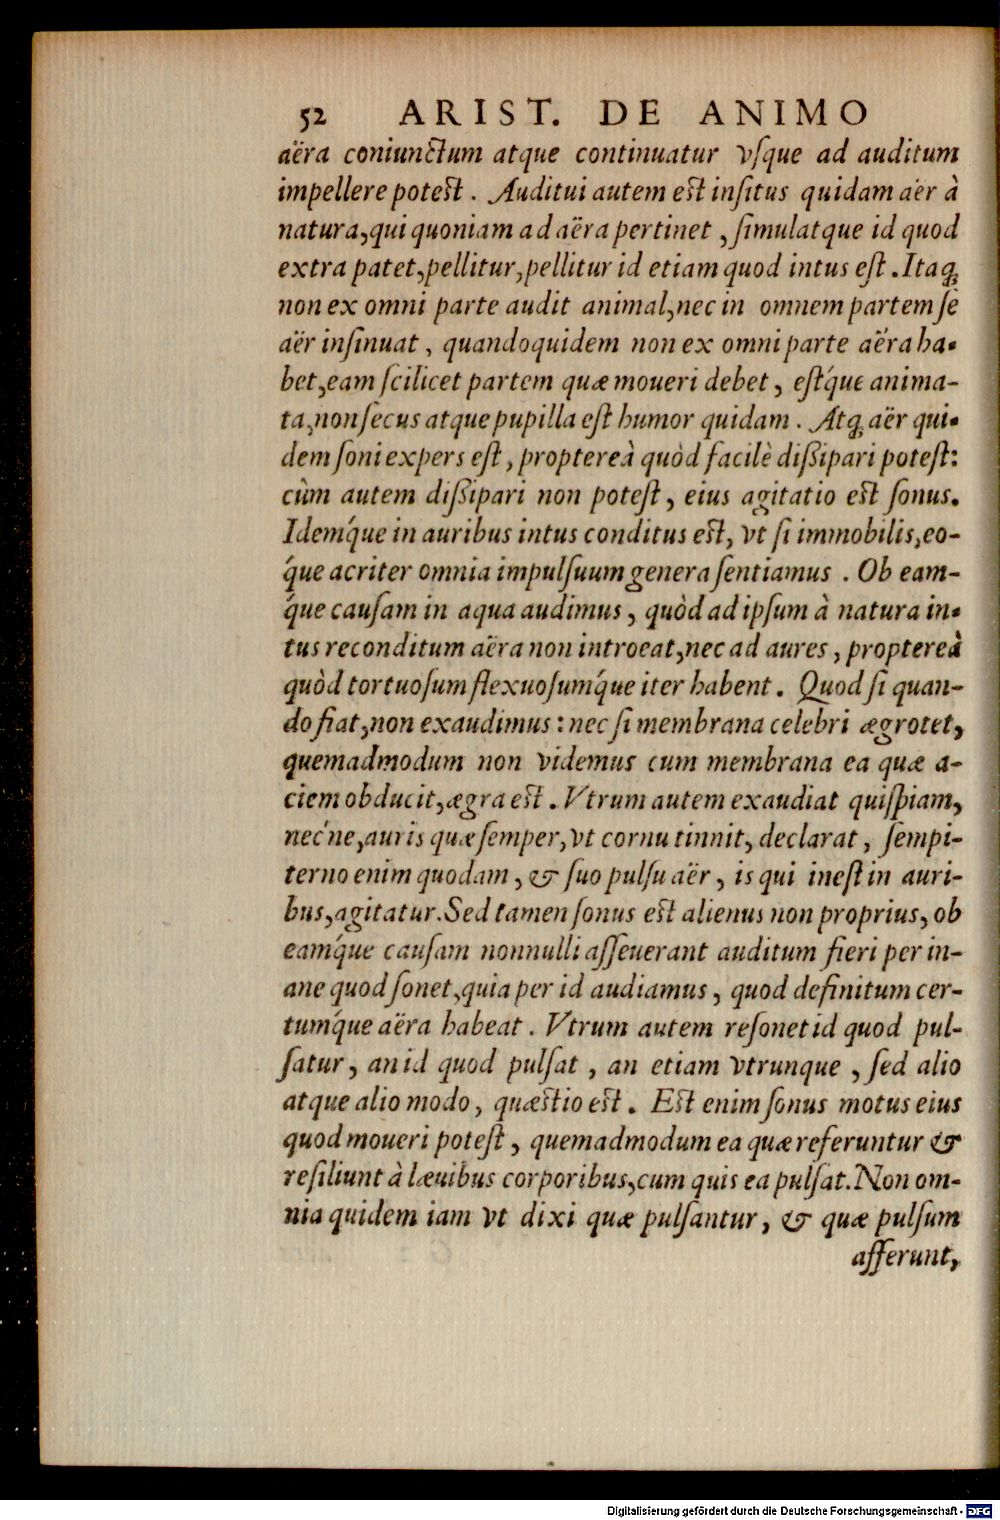 52 ARIST. DE ANIMO
aëra coniunctum atque continuatur vſque ad auditum
impellere poteſt. Auditui autem eſt inſitus quidam aër à
natura, qui quoniam ad aëra pertinet, ſimulatque id quod
extra patet, pellitur, pellitur id etiam quod intus eſt. Itaq;
non ex omni parte audit animal, nec in omnem partem ſe
aër inſinuat, quandoquidem non ex omni parte aëra ha-
bet, eam ſcilicet partem quæ moueri debet, eſtq́ue anima-
ta, non ſecus atque pupilla eſt humor quidam. Atq; aër qui-
dem ſoni expers eſt, proptereà quòd facilè diſſipari poteſt:
cùm autem diſſipari non poteſt, eius agitatio eſt ſonus.
Idemq́ue in auribus intus conditus eſt, vt ſi immobilis, eo-
q́ue acriter omnia impulſuum genera ſentiamus. Ob eam-
q́ue cauſam in aqua audimus, quòd ad ipſum à natura in-
tus reconditum aëra non introeat, nec ad aures, proptereà
quòd tortuoſum flexuoſumq́ue iter habent. Quod ſi quan-
do fiat, non exaudimus: nec ſi membrana celebri ægrotet,
quemadmodum non videmus cum membrana ea quæ a-
ciem obducit, ægra eſt. Vtrum autem exaudiat quiſpiam,
nec'ne, auris quæ ſemper, vt cornu tinnit, declarat, ſempi-
terno enim quodam, & ſuo pulſu aër, is qui ineſt in auri-
bus, agitatur. Sed tamen ſonus eſt alienus non proprius, ob
eamq́ue cauſam nonnulli aſſeuerant auditum fieri per in-
ane quod ſonet, quia per id audiamus, quod definitum cer-
tumq́ue aëra habeat. Vtrum autem reſonet id quod pul-
ſatur, an id quod pulſat, an etiam vtrunque, ſed alio
atque alio modo, quæſtio eſt. Eſt enim ſonus motus eius
quod moueri poteſt, quemadmodum ea quæ referuntur &
reſiliunt à læuibus corporibus, cum quis ea pulſat. Non om-
nia quidem iam vt dixi quæ pulſantur, & quæ pulſum
afferunt,
Digitalisierung gefördert durch die Deutsche Forschungsgemeinschaft - DFG